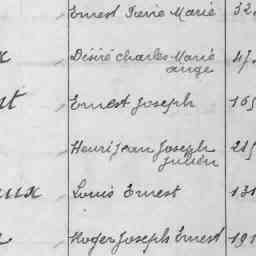 Ernest Pierre Marie 32
Désiré Charles Marie 47
ange
Ernest Joseph 165
Henri Jean Joseph 215
Julien
aux Louis Ernest 131
Roger Joseph Ernest 191